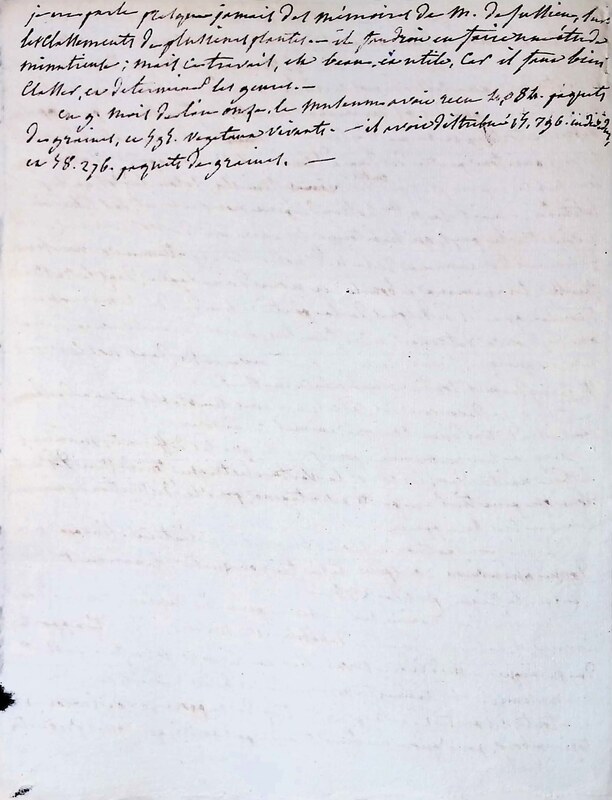 je ne parle presque jamais des mémoires de M. de Jussieu, sur
les classements de plusieurs plantes. — il faudroit en faire une etude
minutieuse ; mais ce travail, est beau, est utile, car il faut bien
classer, et determiner les genres. —
en 9. mois de l'an onze, le museum avoit recu 4,084. paquets
de graines, et 595. vegetaux vivants. — il avoit distribué 15,796. individus,
et 58.276. paquets de graines. —